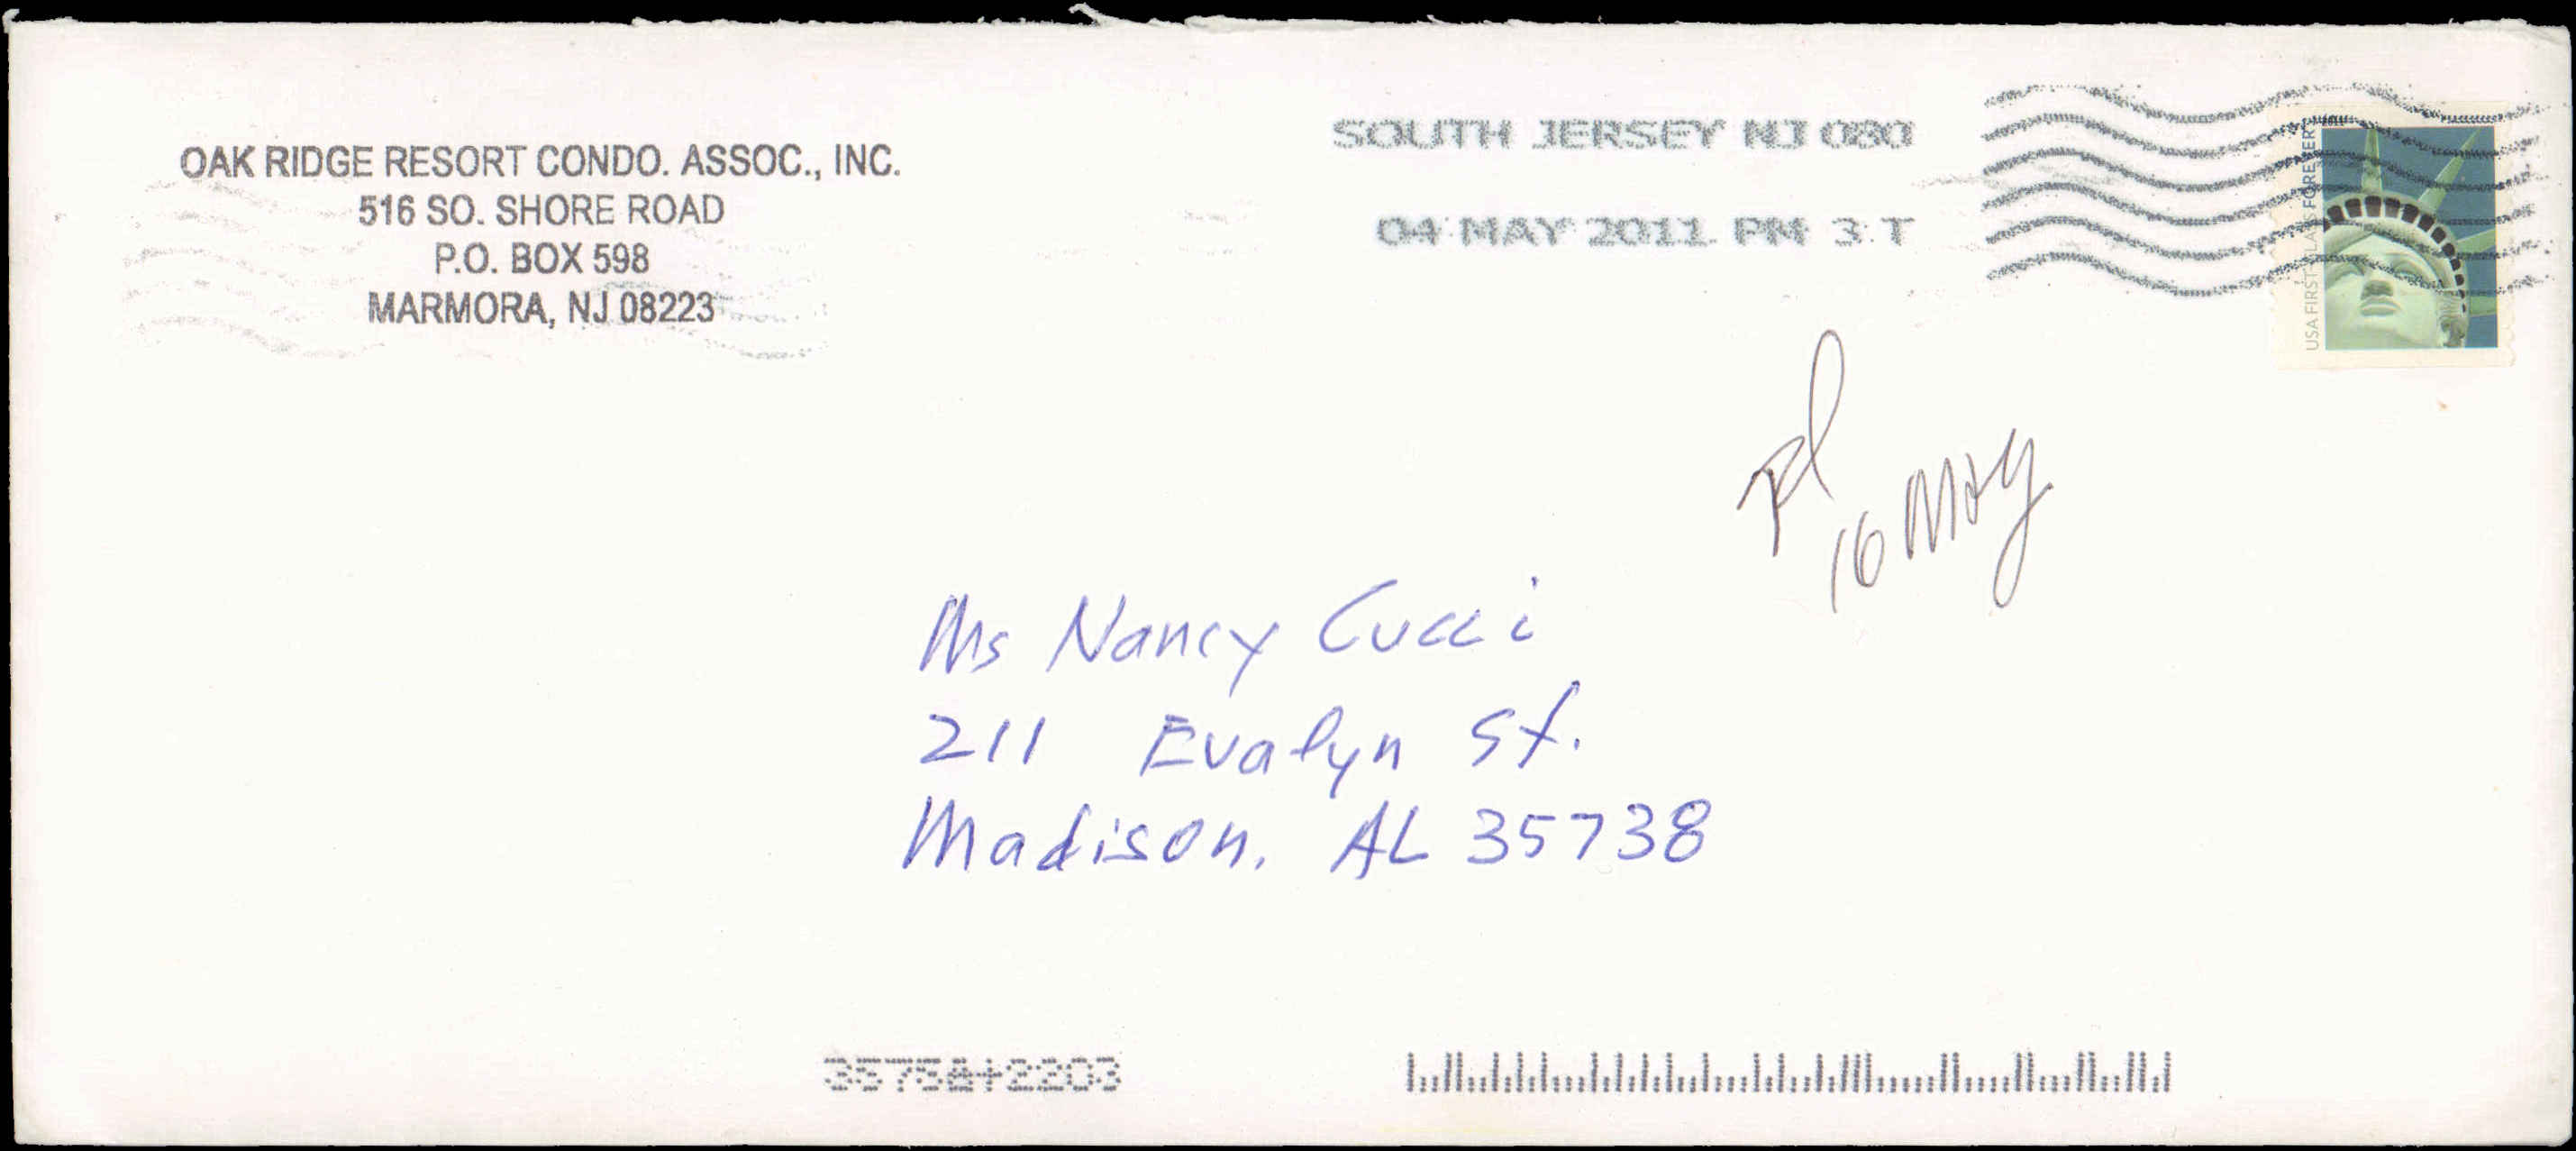 OAK RIDGE RESORT CONDO. ASSOC., INC.
516 SO. SHORE ROAD
P.O. BOX 598
MARMORA, NJ 08223
SOUTH JERSEY NJ 080
04 MAY 2011 PM 3 T
USA FIRST-CLASS FOREVER
pd
16 MAY
Ms Nancy Cucci
211 Evalyn St.
Madison, AL 35738